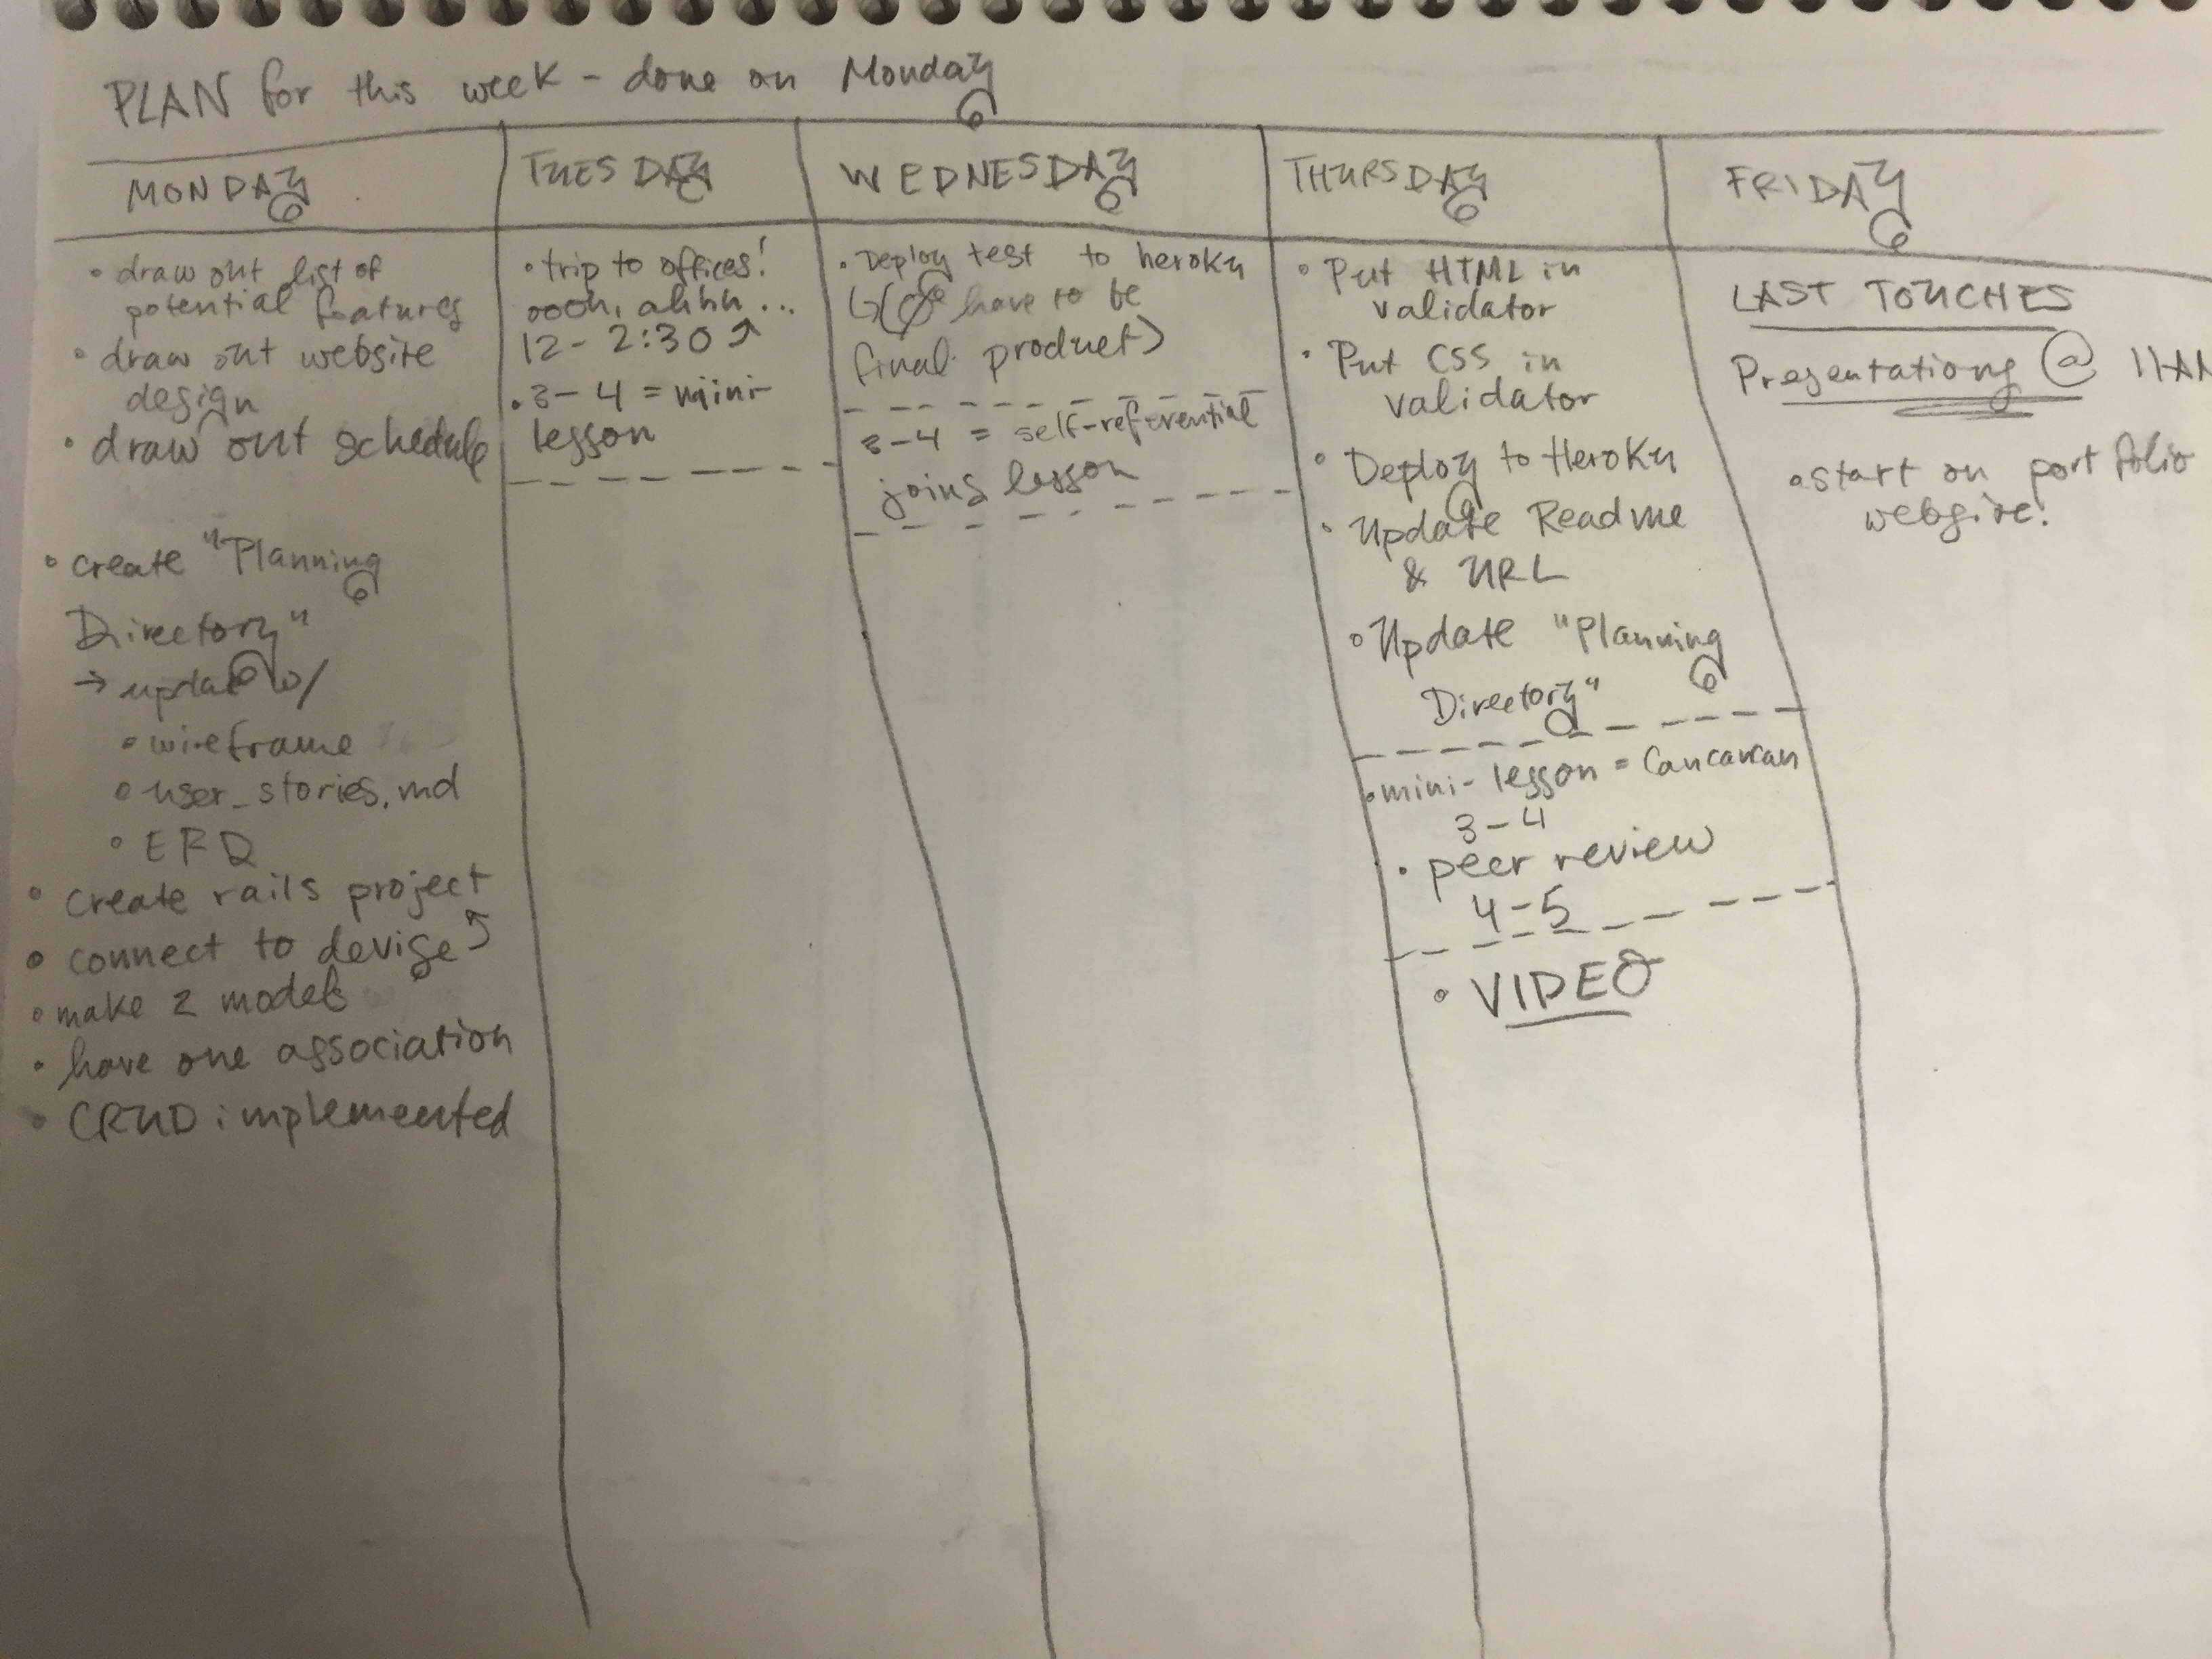 PLAN for this week - done on Monday
MONDAY
• draw out list of
potential features
• draw out website
design
• draw out schedule
• create "Planning
Directory"
→ update w/
• wireframe
• user_stories.md
• ERD
• create rails project
• connect to devise
• make 2 models
• have one association
• CRUD implemented
TUESDAY
• trip to offices!
oooh, ahhh...
12 - 2:30
• 3-4 = mini-
lesson
WEDNESDAY
• Deploy test to heroku
have to be
final product)
3-4 = self-referential
joins lesson
THURSDAY
• Put HTML in
validator
• Put CSS in
validator
• Deploy to Heroku
• Update Readme
& URL
• Update "planning
Directory"
• mini-lesson = Cancancan
3-4
• peer review
4-5
• VIDEO
FRIDAY
LAST TOUCHES
Presentations @ 11AM
start on portfolio
website!